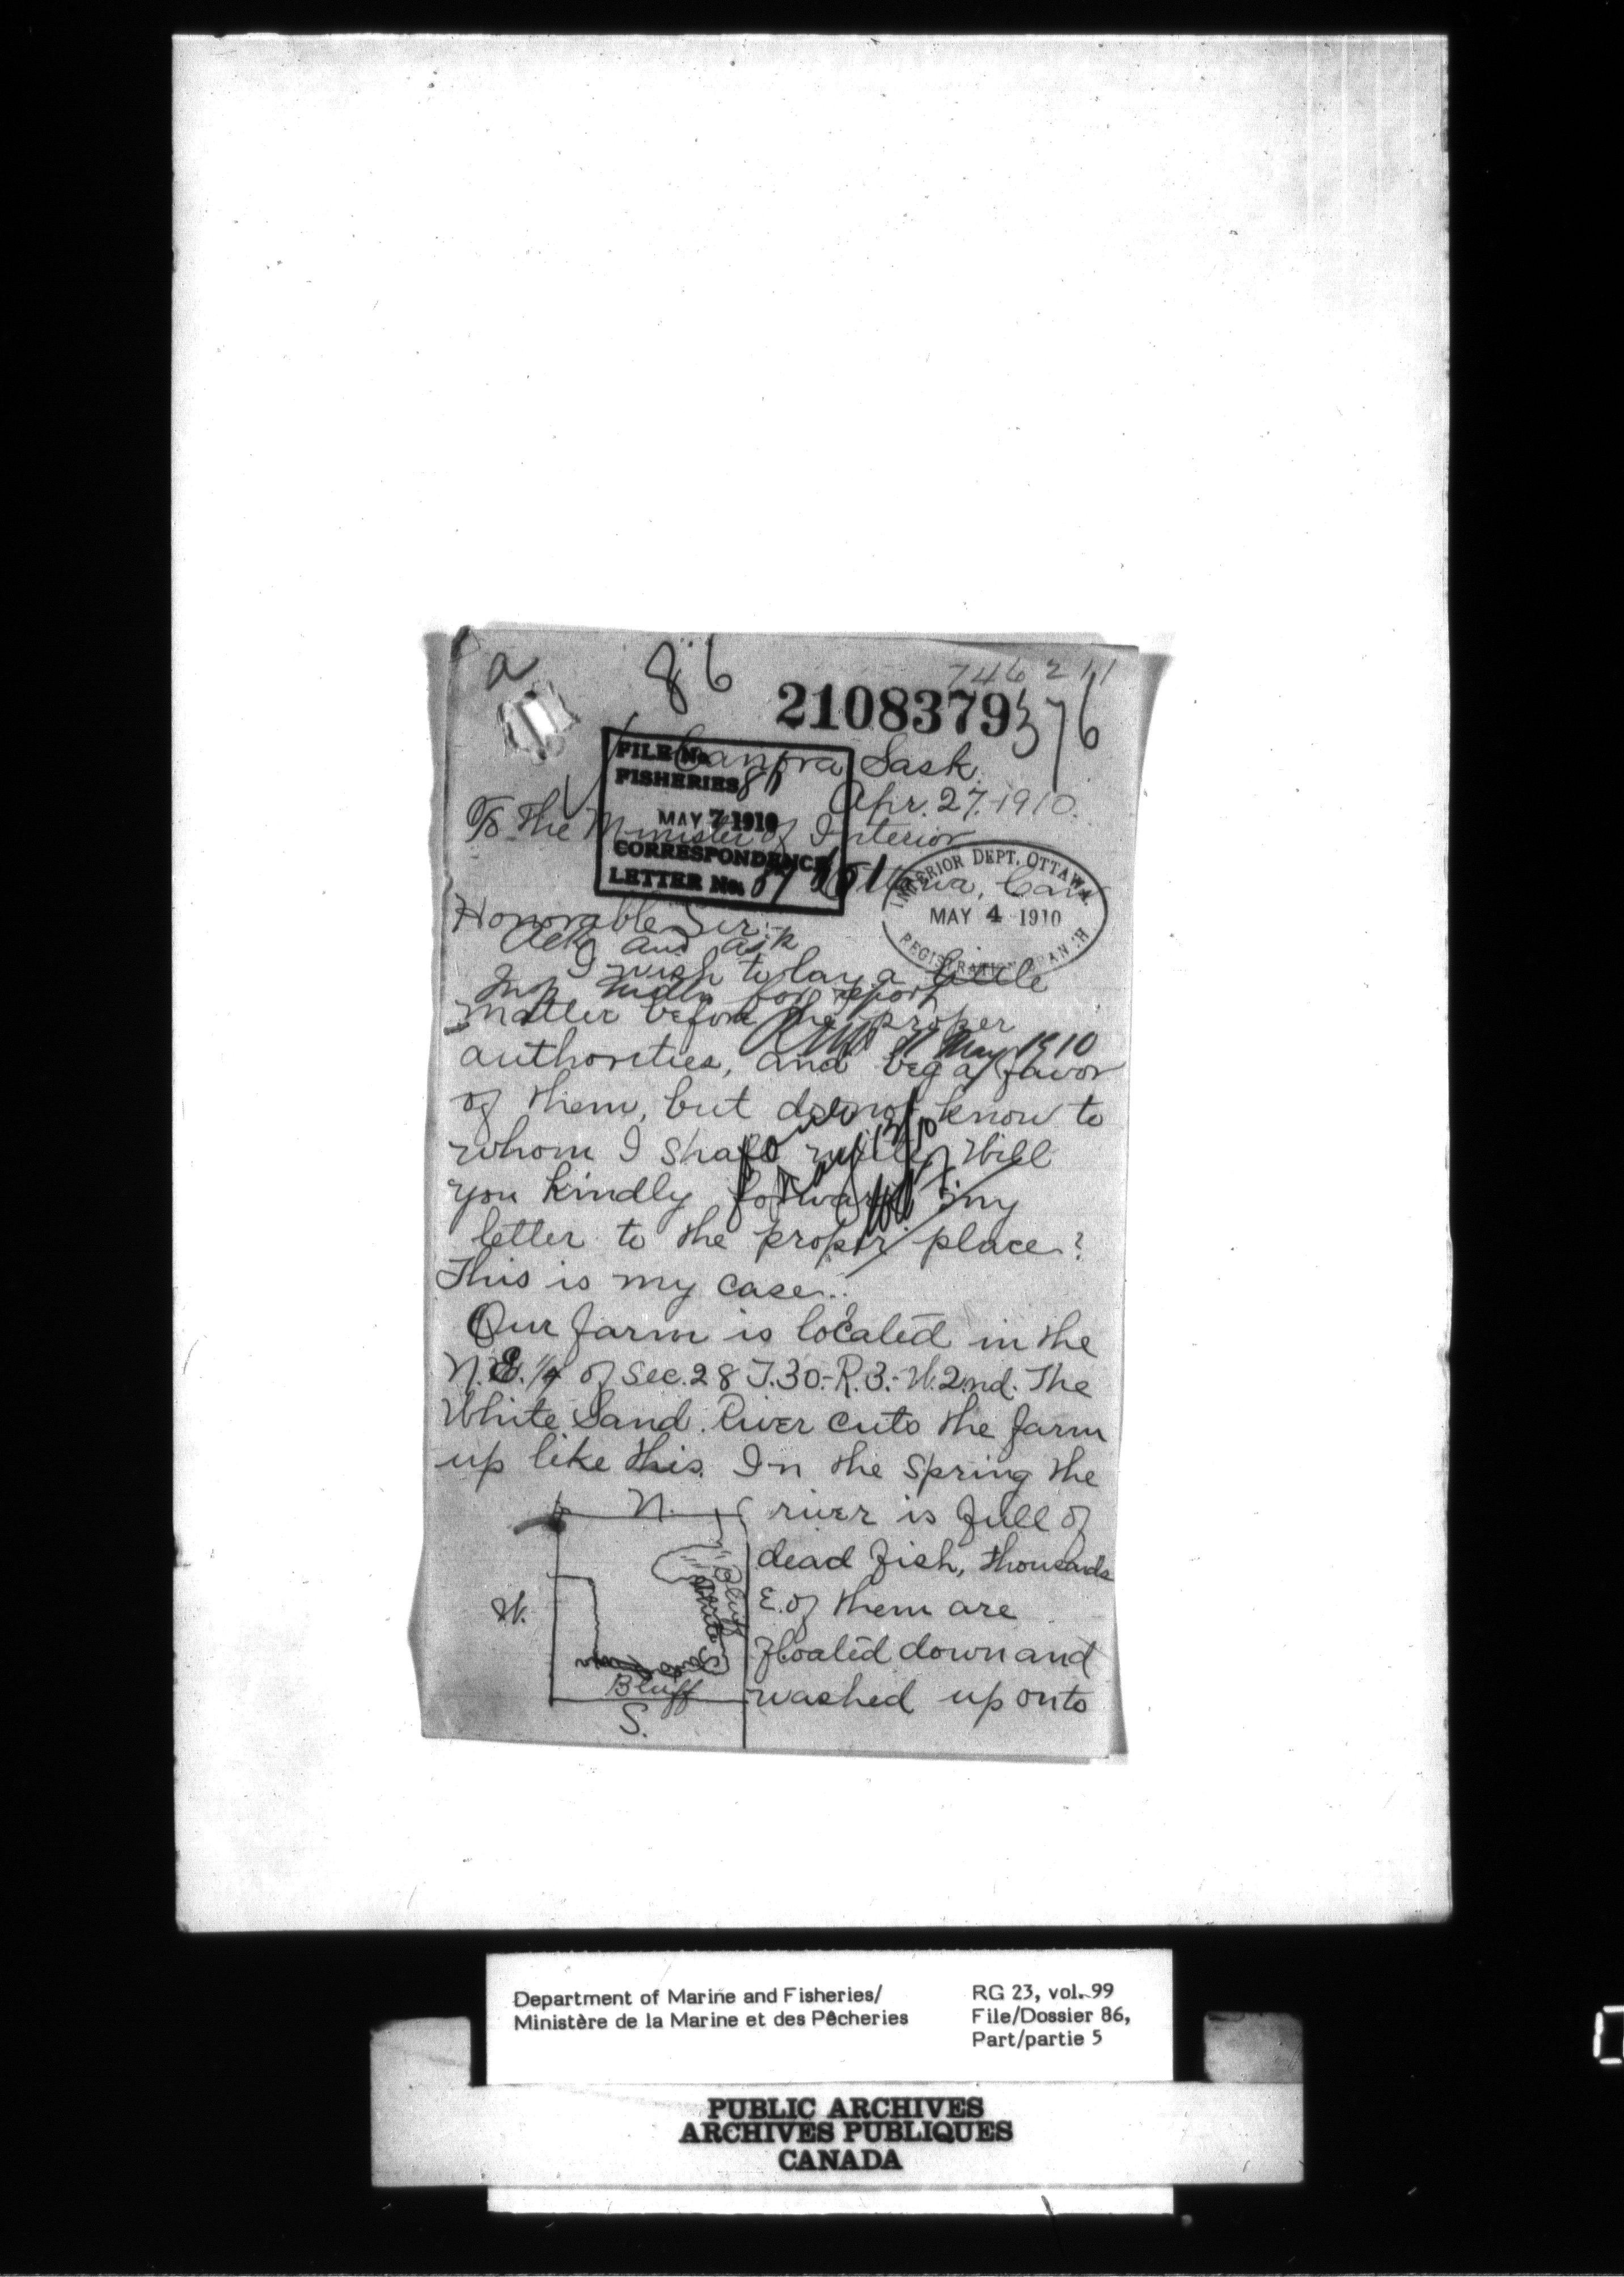 a
86
746211
2108379
376
Canora Sask.
FILE No.
FISHERIES 86
Apr. 27. 1910.
MAY 7 1910
To the Minister of Interior
CORRESPONDENCE
LETTER No.
Ottawa, Can
INTERIOR DEPT. OTTAWA.
MAY 4 1910
REGISTRATION BRANCH
Honorable Sir:-
Ack and ask
I wish to lay a little
Insp for report
matter before the proper
May 1910
authorities, and beg a favor
of them, but do not know to
whom I shall write. Will
you kindly forward my
letter to the proper place?
This is my case:
Our farm is located in the
N.E. 1/4 of Sec. 28 T.30.-R.3.-W.2nd. The
White Sand River cuts the farm
up like this. In the spring the
N.
river is full of
dead fish, thousands
W.
E.
of them are
floated down and
washed up onto
Bluff
White Sand River
Bluff
S.
Department of Marine and Fisheries/
Ministère de la Marine et des Pêcheries
RG 23, vol. 99
File/Dossier 86,
Part/partie 5
PUBLIC ARCHIVES
ARCHIVES PUBLIQUES
CANADA